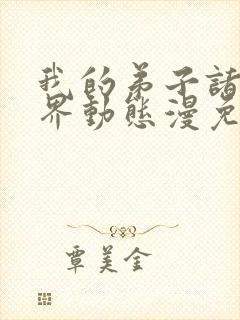 我的弟子諸
界動態漫免
覃美金